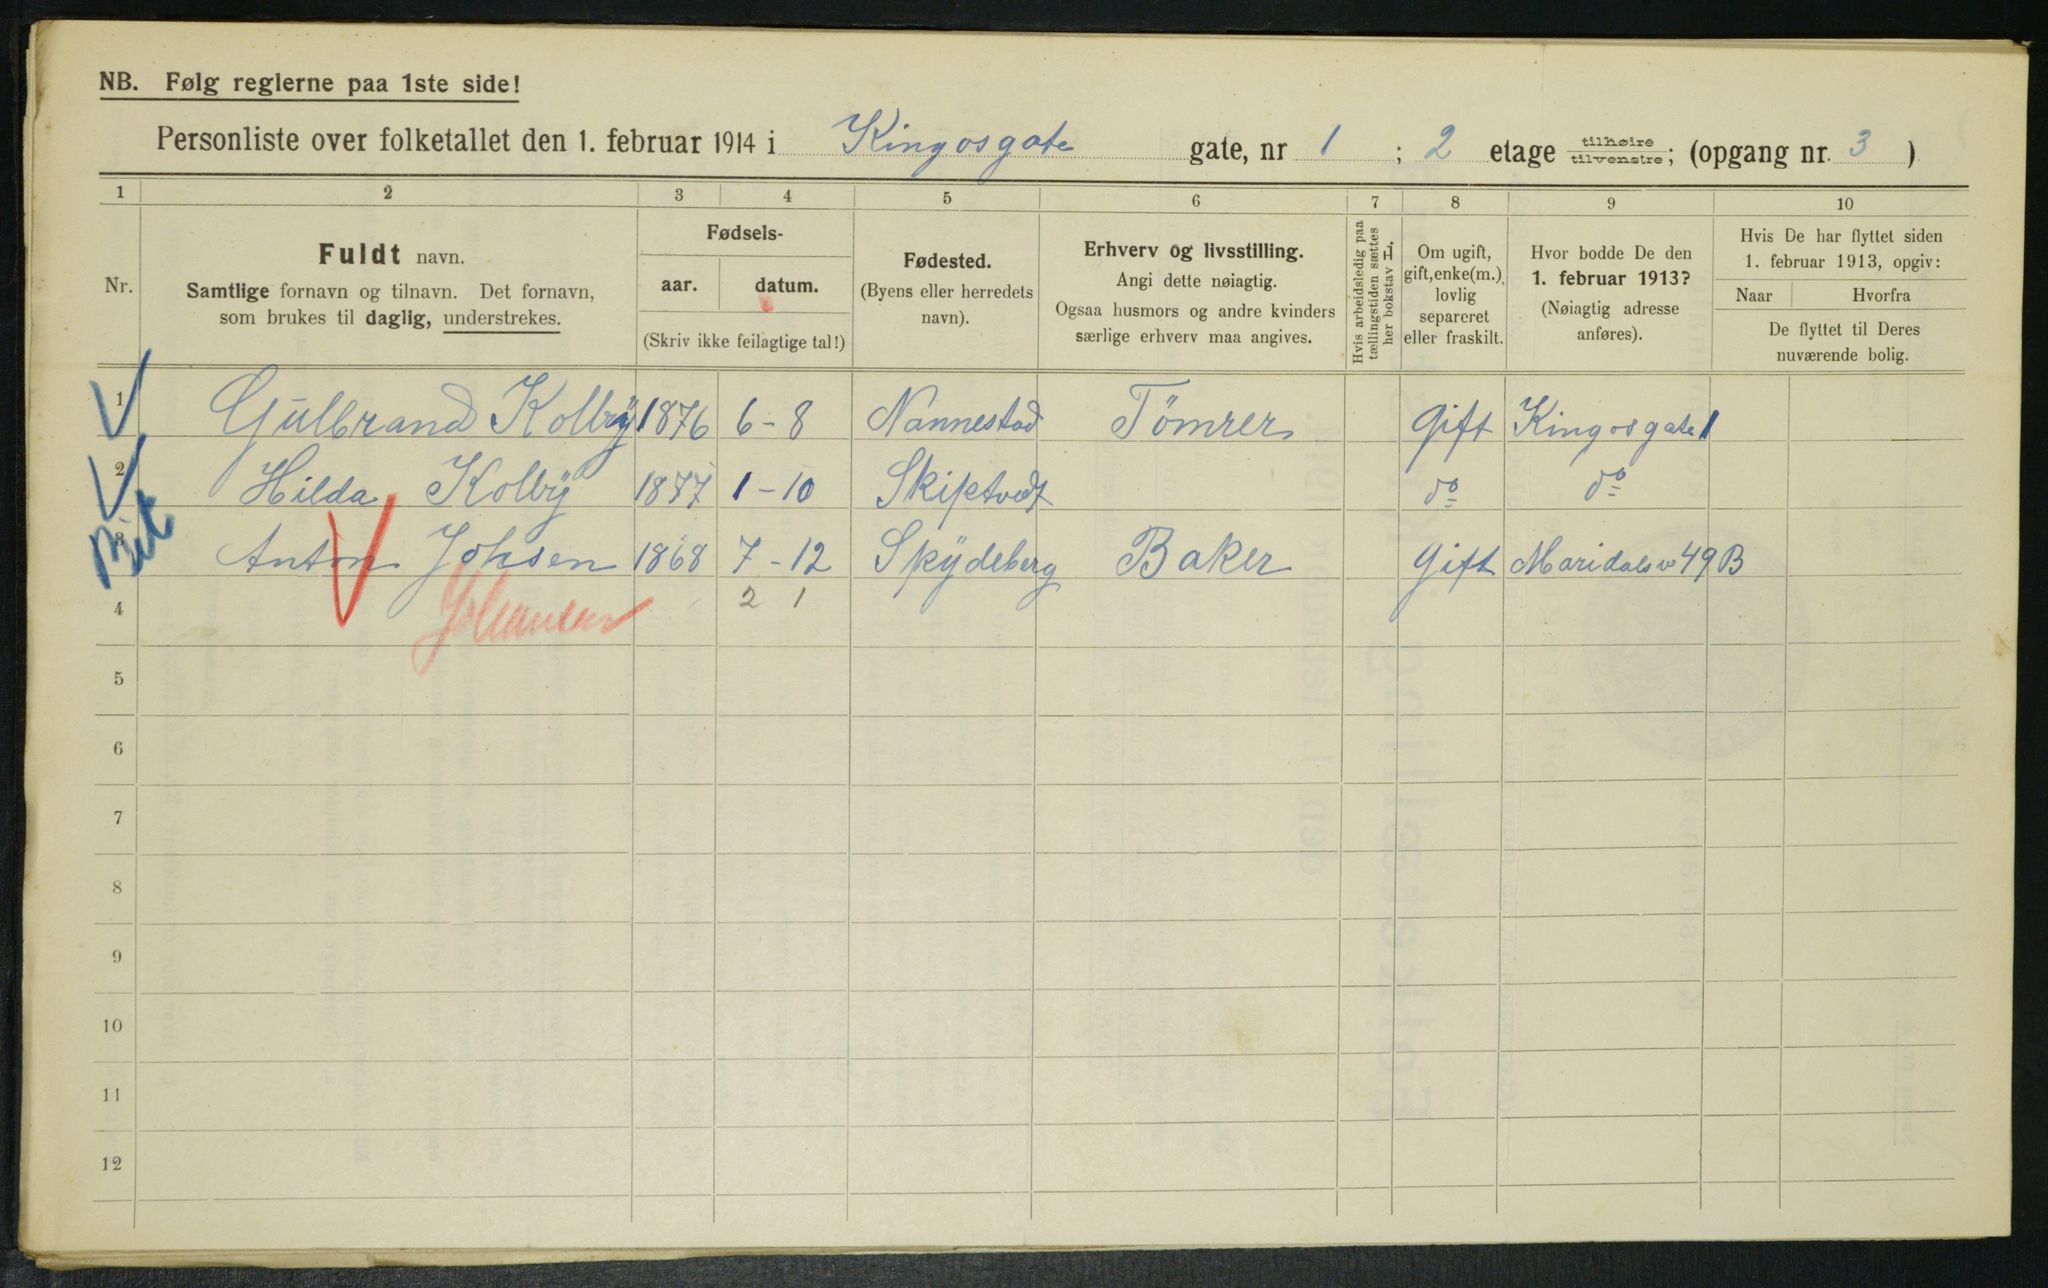 NB. Følg reglerne paa 1ste side!
Personliste over folketallet den 1. februar 1914 i Kingosgate gate, nr 1 ; 2 etage tilhøire tilvenstre; (opgang nr. 3 )
1 2 3 4 5 6 7 8 9 10
Nr.
Fuldt navn.
Samtlige fornavn og tilnavn. Det fornavn,
som brukes til daglig, understrekes.
Fødsels-
aar. datum.
(Skriv ikke feilagtige tal!)
Fødested.
(Byens eller herredets
navn).
Erhverv og livsstilling.
Angi dette nøiagtig.
Ogsaa husmors og andre kvinders
særlige erhverv maa angives.
Hvis arbeidsledig paa
tællingstiden sættes
her bokstav L.
Om ugift,
gift, enke(m.),
lovlig
separeret
eller fraskilt.
Hvor bodde De den
1. februar 1913?
(Nøiagtig adresse
anføres).
Hvis De har flyttet siden
1. februar 1913, opgiv:
Naar Hvorfra
De flyttet til Deres
nuværende bolig.
1 Gulbrand Kolbÿ 1876 6-8 Nannestad Tömrer Gift Kingosgate 1
2 Hilda Kolbÿ 1877 1-10 Skiptvedt do do
3 Anton Johsen 1868 7-12 Skÿdeberg Baker Gift Maridalsv 49 B
4 Johansen 2 1
5
6
7
8
9
10
11
12